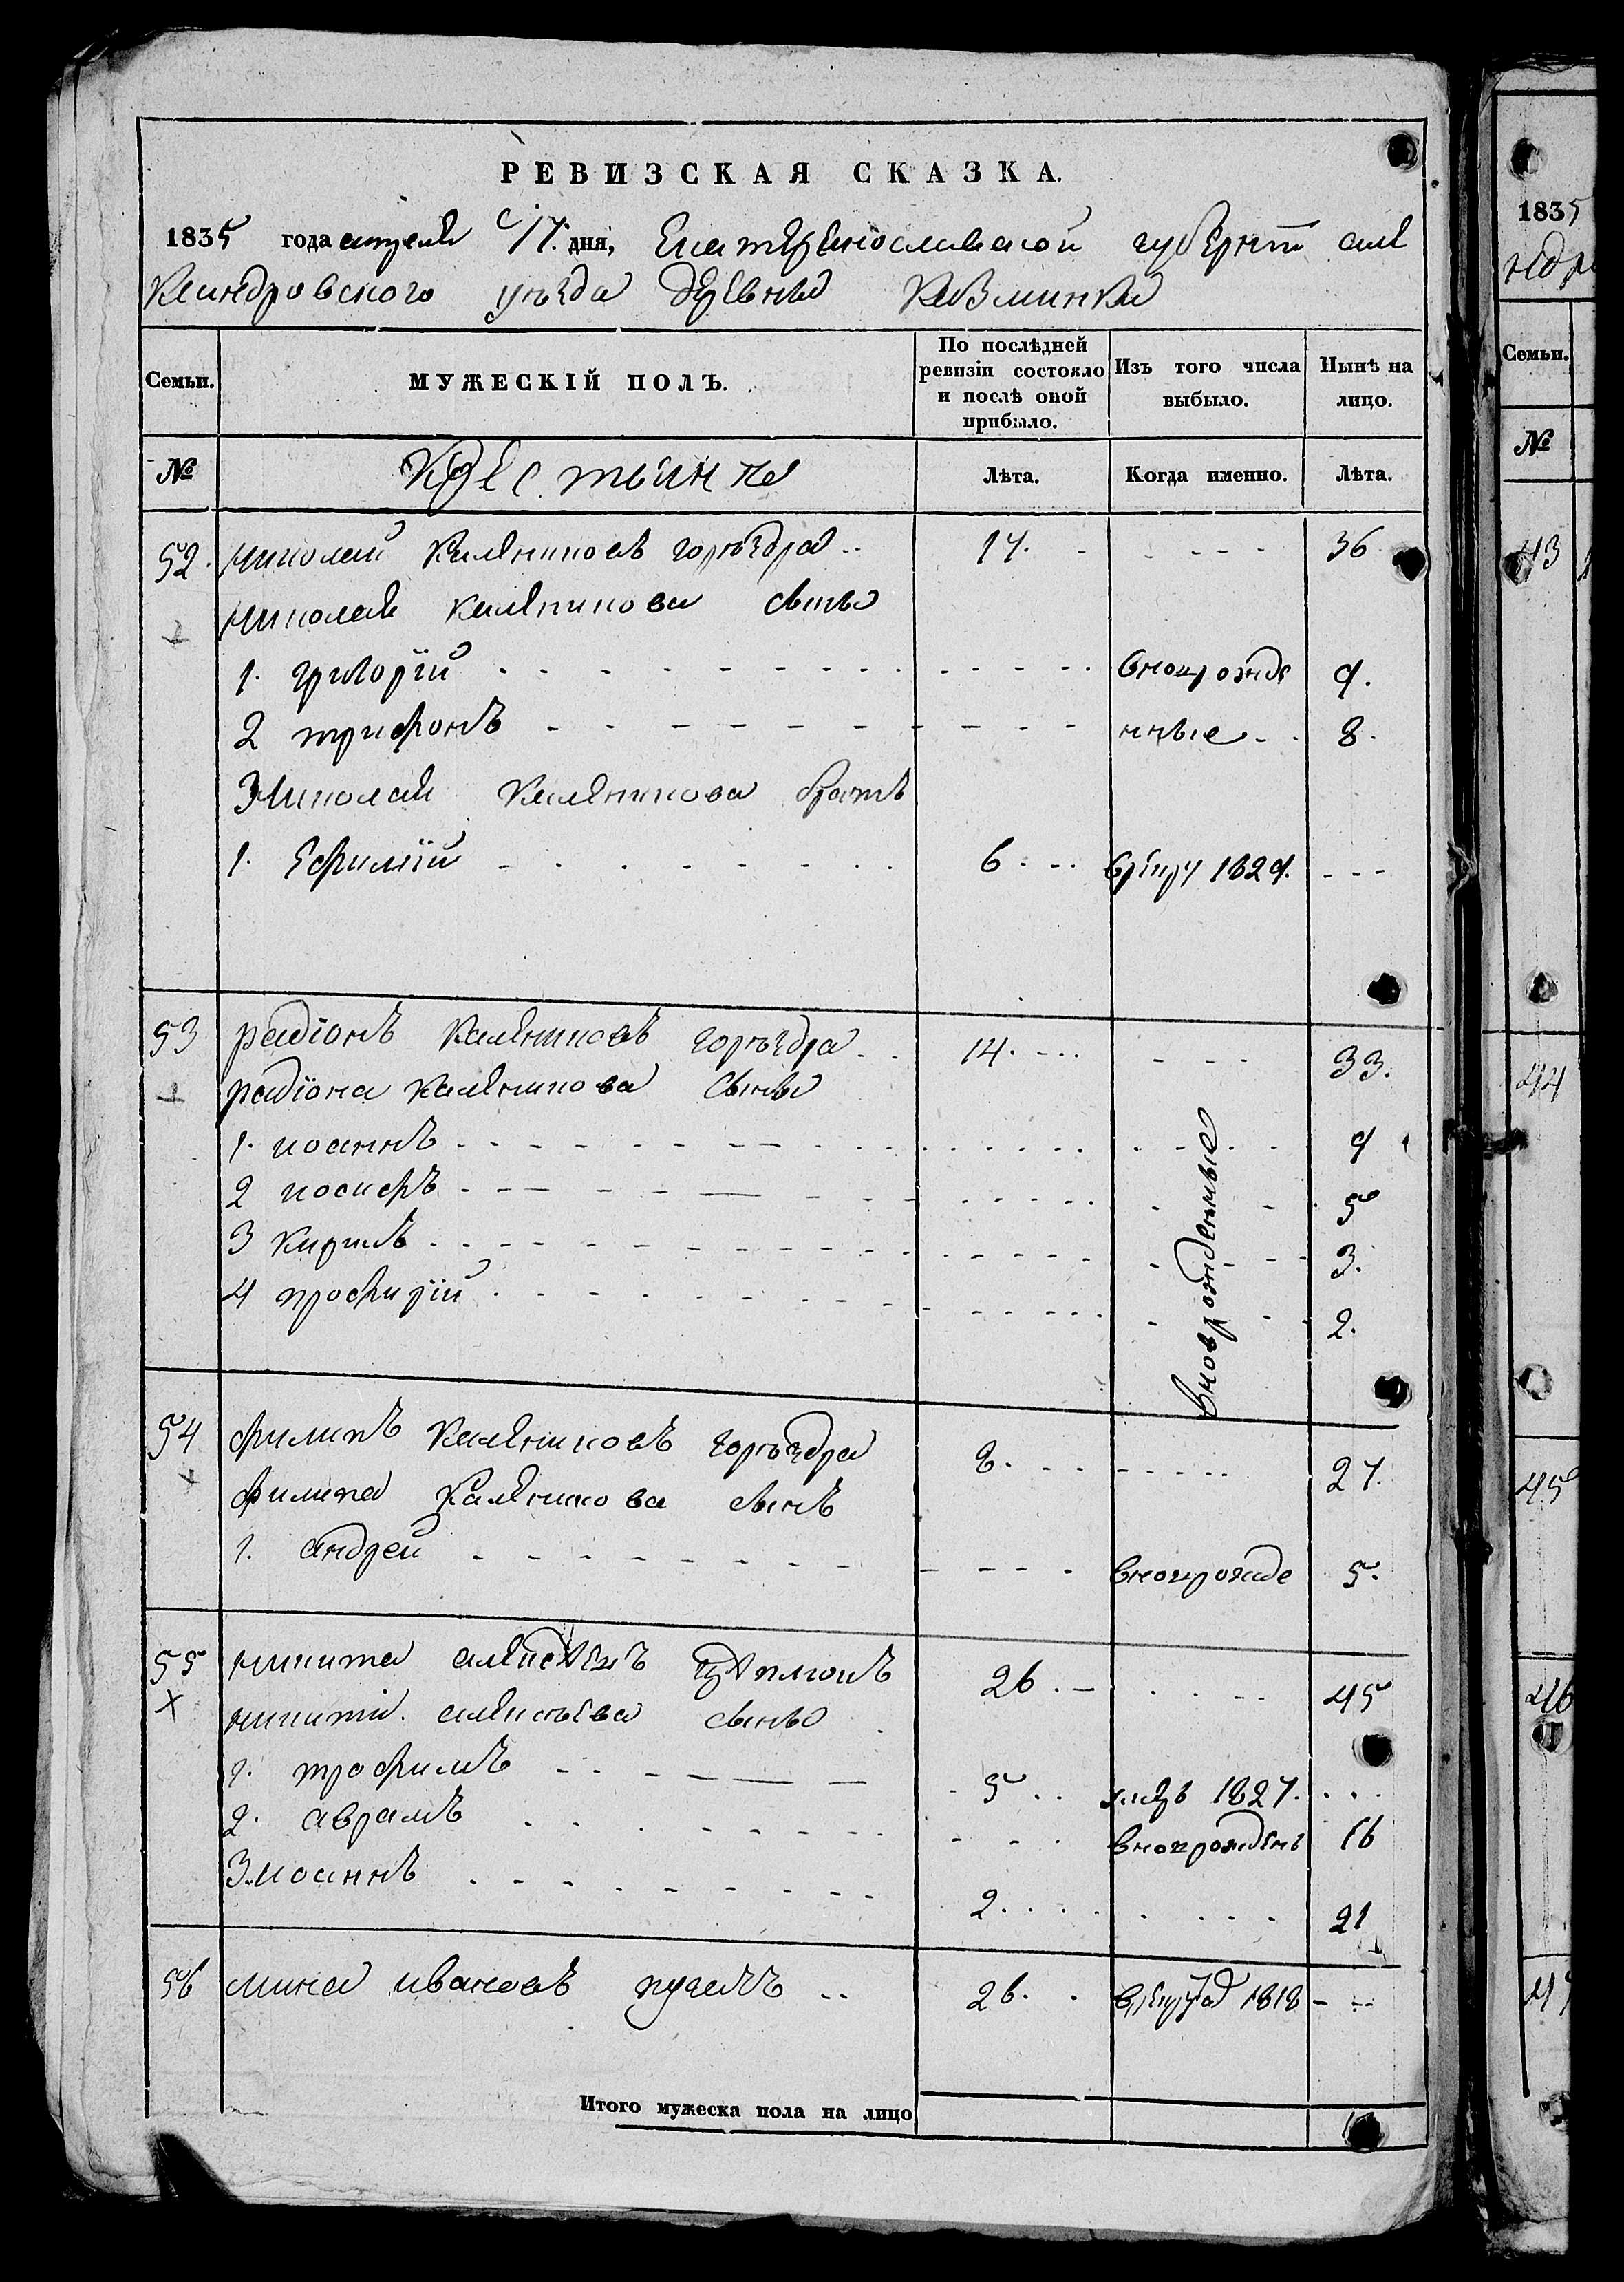 РЕВИЗСКАЯ СКАЗКА.
1835 года апреля 17. дня, Екатеринославской губернiи але
ксандровского уъезда деревни
Семьи. МУЖЕСКІЙ ПОЛЪ. По послѣдней ревизіи состояло и послѣ оной прибыло. Изъ того числа выбыло. Нынѣ на лицо.
№ Крестьяне Лѣта. Когда именно. Лѣта.
52. николай Калениковъ 17. 36
николая каленикова сыны
1. григорiй вновьрожде 9.
2 трифонъ нные 8.
Николая Каленикова братъ
1. Ефимiй 6. врекру 1829.
53 радiонъ Калениковъ 14. 33.
радiона каленикова сыны
1. иоаннъ 9
2 иосифъ 5
3 Кирилъ 3.
4 профирiй 2.
вноврожденные
54 филипъ Калениковъ 8. 27.
филипа Каленикова сынъ
1. андрей вновьрожде 5.
55 никита 26. 45
никити. алексъева сыны
1. трофимъ 5 умеръ 1827.
2. аврамъ вновьрожденъ 16
3. иоаннъ 2. 21
56 мина ивановъ 26. 1818
Итого мужеска пола на лицо
1835
Семьи.
№
43
44
45
46